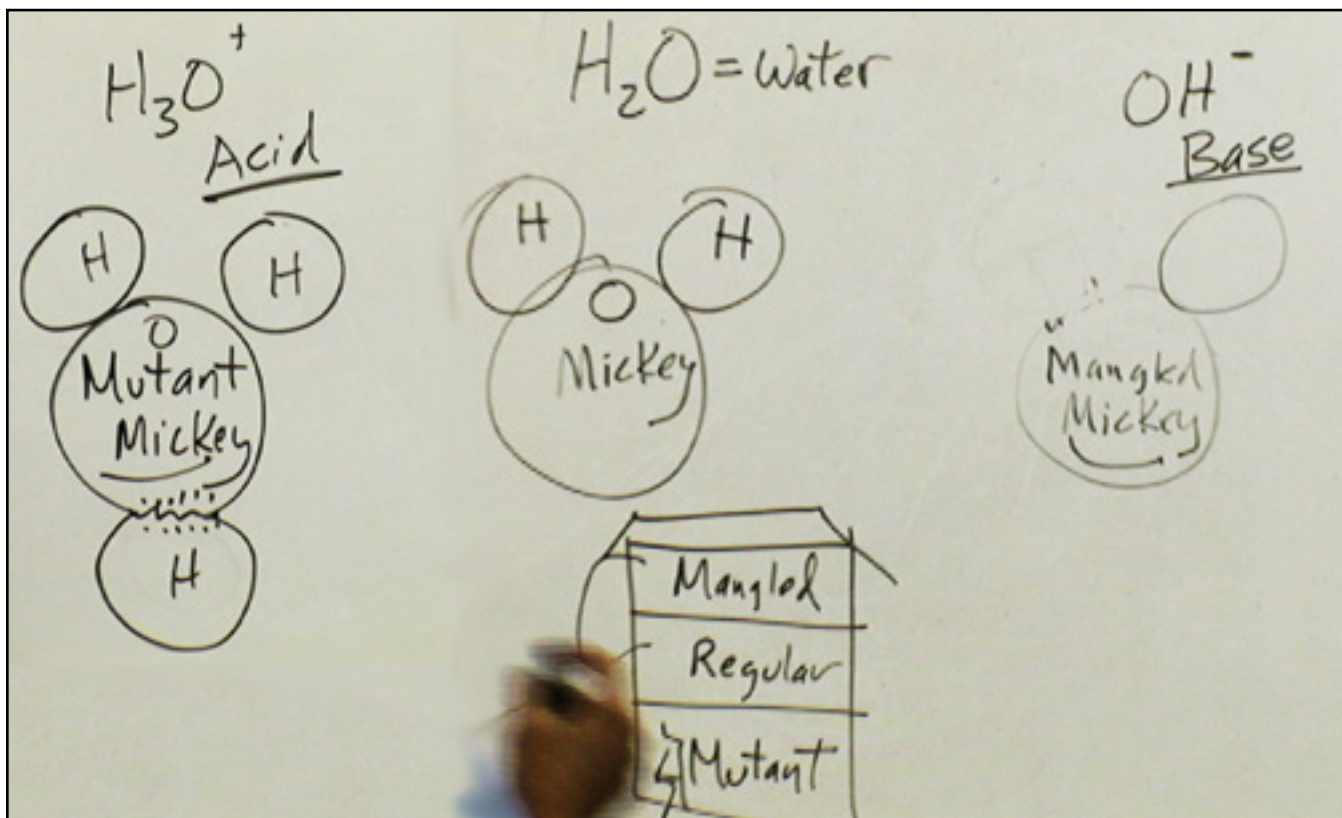 H₃O⁺
Acid
H
H
O
Mutant
Mickey
H
H₂O = Water
H
H
O
Mickey
OH⁻
Base
Mangled
Mickey
Mangled
Regular
Mutant